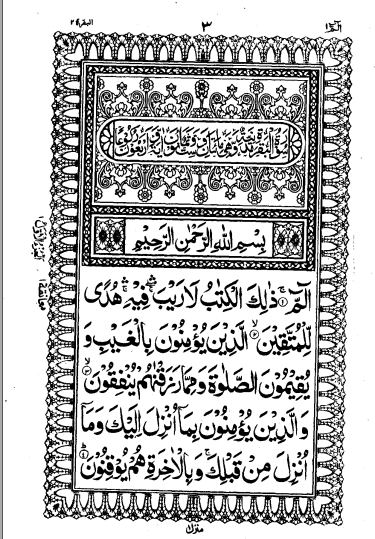 الٓمّٓ ١ ٣ البقرة ٢
سورة البقرة مدنية وهى مائتان وست وثمانون اية واربعون ركوعا
بِسْمِ اللّٰهِ الرَّحْمٰنِ الرَّحِيْمِ
الٓمّٓ ۚ﴿۱﴾ ذٰلِكَ الْكِتٰبُ لَا رَيْبَ ۛۚ فِيْهِ ۛۚ هُدًى
لِّلْمُتَّقِيْنَ ۙ﴿۲﴾ الَّذِيْنَ يُؤْمِنُوْنَ بِالْغَيْبِ وَ
يُقِيْمُوْنَ الصَّلٰوةَ وَمِمَّا رَزَقْنٰهُمْ يُنْفِقُوْنَ ۙ﴿۳﴾
وَالَّذِيْنَ يُؤْمِنُوْنَ بِمَاۤ اُنْزِلَ اِلَيْكَ وَمَاۤ
اُنْزِلَ مِنْ قَبْلِكَ ۚ وَبِالْاٰخِرَةِ هُمْ يُوْقِنُوْنَ ؕ﴿۴﴾
منزل